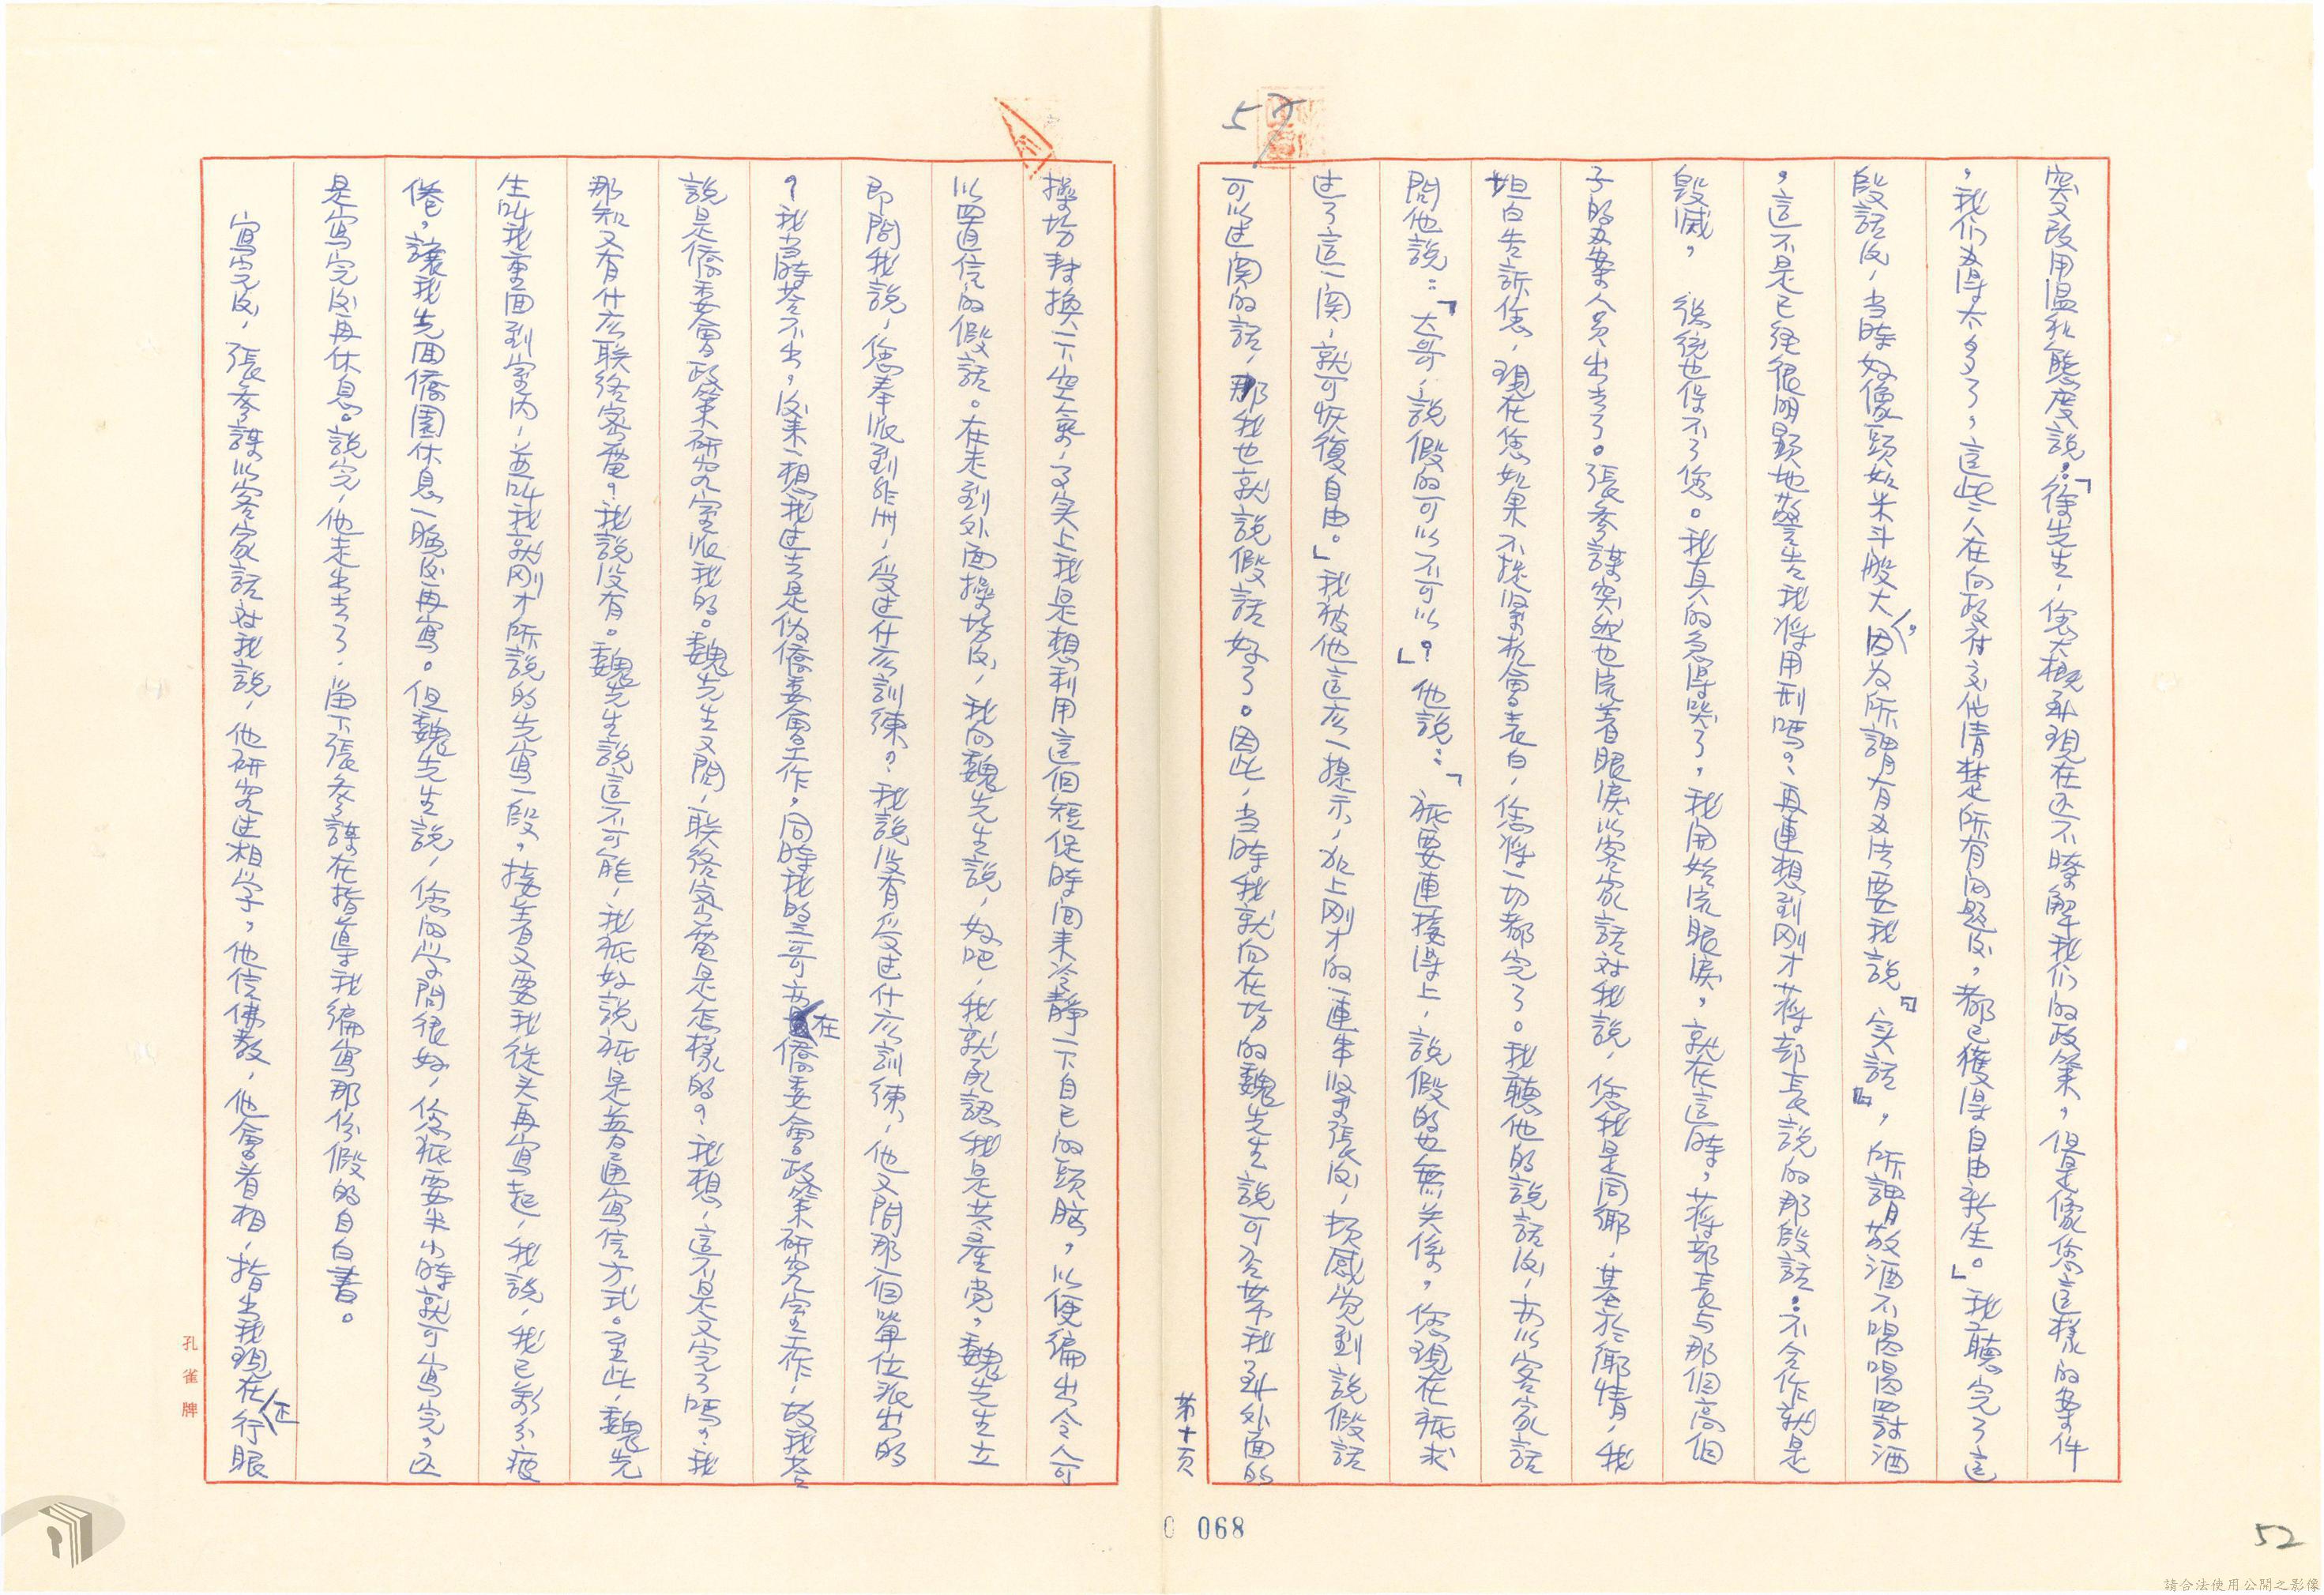 突又改用溫和態度說:「徐先生,您大概到現在还不瞭解我们的政策,但是像您這樣的案件
,我们办得太多了,這些人在向政府交代清楚所有问题后,都已獲得自由新生。」我聽完了這
段話后,当時好像頭如米斗般大。因为所謂有办法要我說『实話』,所謂敬酒不喝喝罰酒
,這不是已经很明顯地警告我将用刑嗎?再連想到刚才蔣部長說的那段話:不合作就是
毀滅,總统也保不了您。我真的急得哭了,我開始流眼淚,就在這時,蔣部長与那個高個
子的办案人员出去了。張參謀突然也流着眼淚以客家話对我說,您我是同鄉,基於鄉情,我
坦白告訴您,現在您如果不抓緊机會表白,您将一切都完了。我聽他的說話后,亦以客家話
問他說:「大哥,說假的可以不可以」?他說:「祇要連接得上,說假的也無关係,您現在祇求
过了這一関,就可恢復自由。」我被他這広一提示,加上刚才的一連串緊張后,頓感觉到說假話
可以过関的話,那我也就說假話好了。因此,当時我就向在场的魏先生說可否带我到外面的
操场对換一下空氣,事实上我是想利用這個短促時间来冷靜一下自己的頭脑,以便编出令人可
以置信的假話。在走到外面操场后,我向魏先生說,好吧,我就承認我是共產党,魏先生立
即問我說,您奉派到非洲,受过什広訓練?我說没有受过什広訓練,他又問那一個单位派出的
?我当時答不出,后来一想我过去是伪僑委會工作,同時我的三哥亦在僑委會政策研究室工作,故我答
說是僑委會政策研究室派我的。魏先生又問,联络密電是怎樣的?我想,這不是又完了嗎?我
那知又有什広联络密電?我說没有。魏先生說這不可能,我祇好說祇是普通寫信方式。至此,魏先
生叫我重回到室内,並叫我就刚才所說的先寫一段,接着又要我從头再寫起,我說,我已萬分疲
倦,讓我先回僑園休息一晚后再寫。但魏先生說,您的学問很好,您祇要半小時就可寫完,还
是寫完后再休息。說完,他走出去了,留下張參謀在指導我編寫那份假的自白書。
寫完后,張參謀以客家話对我說,他研究过相学,他信佛教,他會看相,指出我現在正行眼
第十页
孔雀牌
57
068
52
請合法使用公開之影像